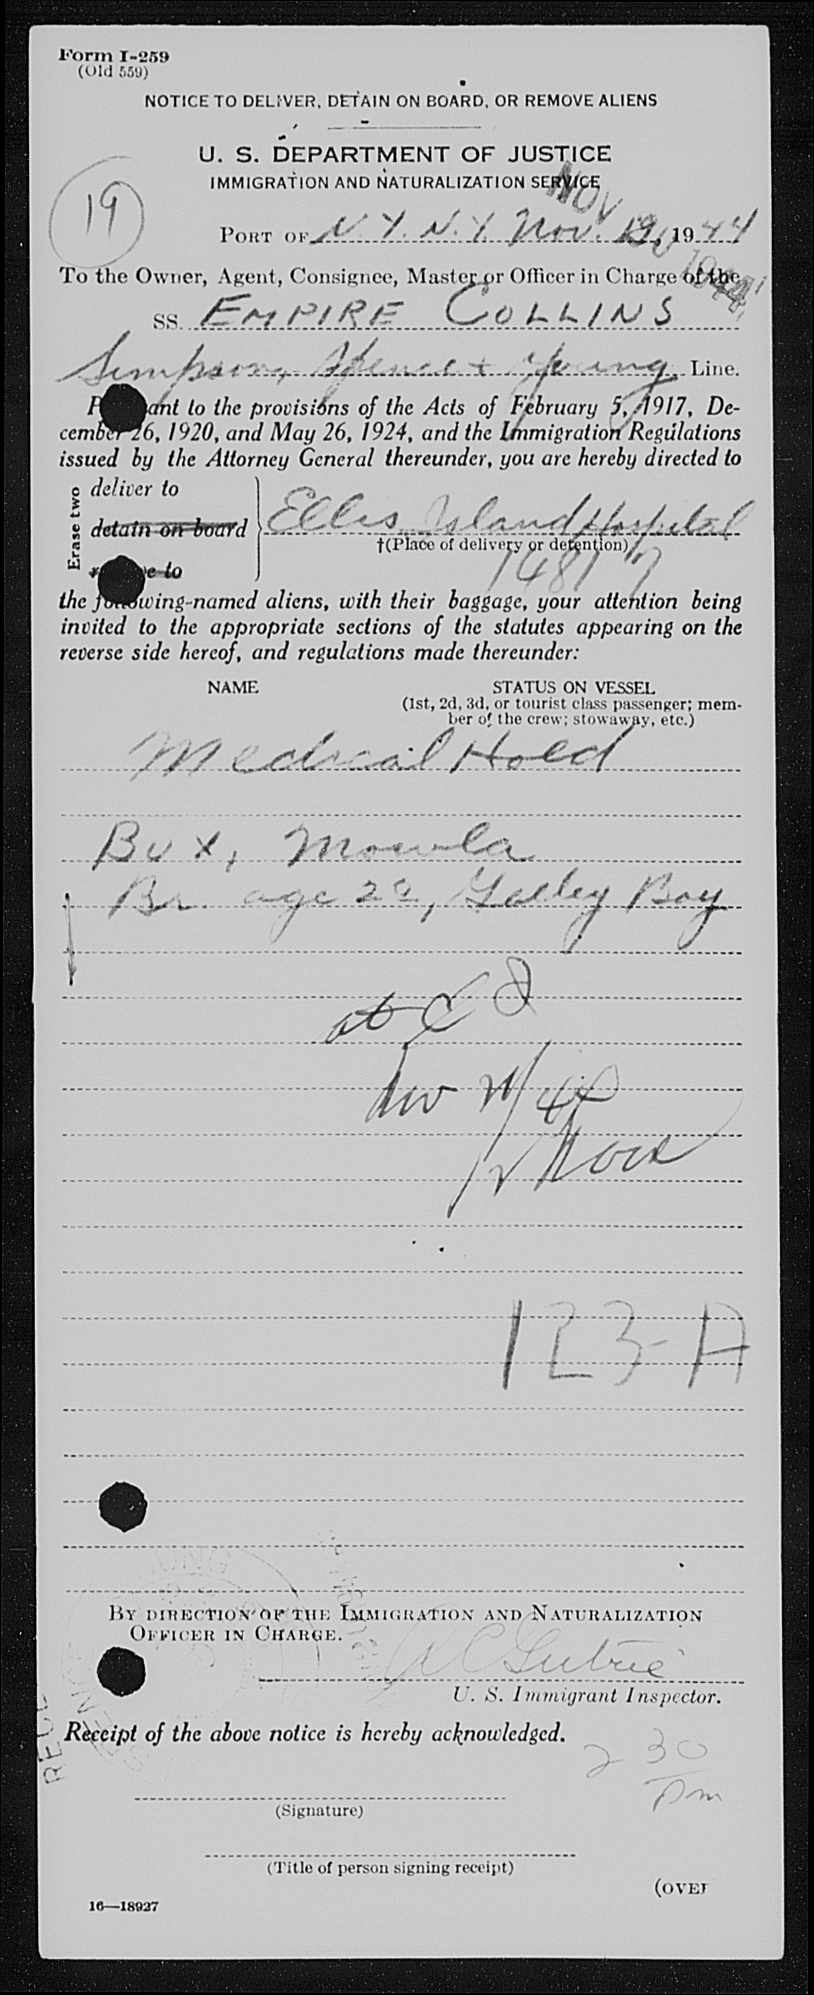 Form I-259
(Old 559)
NOTICE TO DELIVER, DETAIN ON BOARD, OR REMOVE ALIENS
U. S. DEPARTMENT OF JUSTICE
IMMIGRATION AND NATURALIZATION SERVICE
NOV
19
PORT OF N.Y. N.Y. Nov. 19, 1944
1944
To the Owner, Agent, Consignee, Master or Officer in Charge of the
SS. EMPIRE COLLINS
Simpson, Spence & Young Line.
P ant to the provisions of the Acts of February 5, 1917, De-
cember 26, 1920, and May 26, 1924, and the Immigration Regulations
issued by the Attorney General thereunder, you are hereby directed to
Erase two
deliver to
detain on board
Ellis Island Hospital
†(Place of delivery or detention)
r e to
the following-named aliens, with their baggage, your attention being
invited to the appropriate sections of the statutes appearing on the
reverse side hereof, and regulations made thereunder:
NAME STATUS ON VESSEL
(1st, 2d, 3d, or tourist class passenger; mem-
ber of the crew; stowaway, etc.)
Medical Hold
Bux, Mowla
Br. age 20, Galley Boy
123-A
BY DIRECTION OF THE IMMIGRATION AND NATURALIZATION
OFFICER IN CHARGE.
U. S. Immigrant Inspector.
Receipt of the above notice is hereby acknowledged.
2 30
pm
(Signature)
(Title of person signing receipt)
(OVER
16—18927